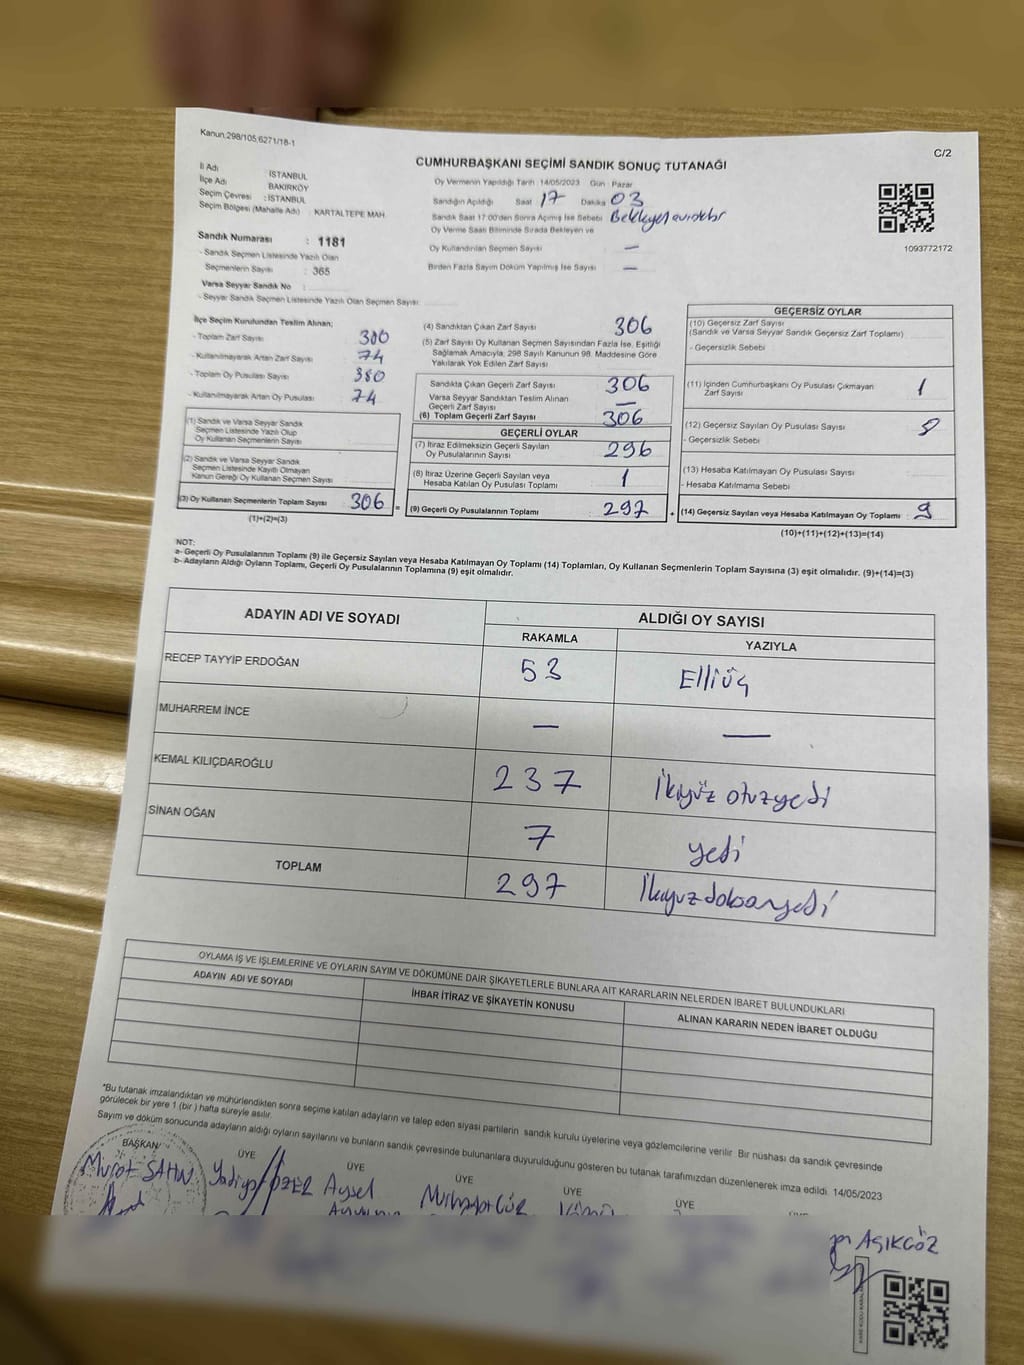 Kanun;298/105;6271/18-1
C/2
CUMHURBAŞKANI SEÇİMİ SANDIK SONUÇ TUTANAĞI
İl Adı : İSTANBUL
İlçe Adı BAKIRKÖY
Seçim Çevresi : İSTANBUL
Seçim Bölgesi (Mahalle Adı) : KARTALTEPE MAH.
Sandık Numarası : 1181
- Sandık Seçmen Listesinde Yazılı Olan
Seçmenlerin Sayısı : 365
Varsa Seyyar Sandık No :
- Seyyar Sandık Seçmen Listesinde Yazılı Olan Seçmen Sayısı :
Oy Vermenin Yapıldığı Tarih :14/05/2023 Gün Pazar
Sandığın Açıldığı Saat 17 Dakika 03
Sandık Saat 17:00'den Sonra Açılmış İse Sebebi
Oy Verme Saati Bitiminde Sırada Bekleyen ve
Oy Kullandırılan Seçmen Sayısı : —
Birden Fazla Sayım Döküm Yapılmış İse Sayısı : —
1093772172
İlçe Seçim Kurulundan Teslim Alınan;
- Toplam Zarf Sayısı : 380
- Kullanılmayarak Artan Zarf Sayısı : 74
- Toplam Oy Pusulası Sayısı : 380
- Kullanılmayarak Artan Oy Pusulası : 74
(1) Sandık ve Varsa Seyyar Sandık
Seçmen Listesinde Yazılı Olup
Oy Kullanan Seçmenlerin Sayısı :
(2) Sandık ve Varsa Seyyar Sandık
Seçmen Listesinde Kayıtlı Olmayan
Kanun Gereği Oy Kullanan Seçmen Sayısı :
(3) Oy Kullanan Seçmenlerin Toplam Sayısı : 306
(1)+(2)=(3)
(4) Sandıktan Çıkan Zarf Sayısı : 306
(5) Zarf Sayısı Oy Kullanan Seçmen Sayısından Fazla İse, Eşitliği
Sağlamak Amacıyla, 298 Sayılı Kanunun 98. Maddesine Göre
Yakılarak Yok Edilen Zarf Sayısı :
Sandıkta Çıkan Geçerli Zarf Sayısı : 306
Varsa Seyyar Sandıktan Teslim Alınan
Geçerli Zarf Sayısı : —
(6) Toplam Geçerli Zarf Sayısı : 306
GEÇERLİ OYLAR
(7) İtiraz Edilmeksizin Geçerli Sayılan
Oy Pusulalarının Sayısı : 296
(8) İtiraz Üzerine Geçerli Sayılan veya
Hesaba Katılan Oy Pusulası Toplamı : 1
(9) Geçerli Oy Pusulalarının Toplamı : 297
GEÇERSİZ OYLAR
(10) Geçersiz Zarf Sayısı
(Sandık ve Varsa Seyyar Sandık Geçersiz Zarf Toplamı) :
- Geçersizlik Sebebi
(11) İçinden Cumhurbaşkanı Oy Pusulası Çıkmayan
Zarf Sayısı : 1
(12) Geçersiz Sayılan Oy Pusulası Sayısı : 8
- Geçersizlik Sebebi
(13) Hesaba Katılmayan Oy Pusulası Sayısı :
- Hesaba Katılmama Sebebi
(14) Geçersiz Sayılan veya Hesaba Katılmayan Oy Toplamı : 9
(10)+(11)+(12)+(13)=(14)
NOT:
a- Geçerli Oy Pusulalarının Toplamı (9) ile Geçersiz Sayılan veya Hesaba Katılmayan Oy Toplamı (14) Toplamları, Oy Kullanan Seçmenlerin Toplam Sayısına (3) eşit olmalıdır. (9)+(14)=(3)
b- Adayların Aldığı Oyların Toplamı, Geçerli Oy Pusulalarının Toplamına (9) eşit olmalıdır.
ADAYIN ADI VE SOYADI ALDIĞI OY SAYISI
RAKAMLA YAZIYLA
RECEP TAYYİP ERDOĞAN 53 Elliüç
MUHARREM İNCE — —
KEMAL KILIÇDAROĞLU 237 İkiyüz otuzyedi
SİNAN OĞAN 7 yedi
TOPLAM 297 İkiyuzdoksanyedi
OYLAMA İŞ VE İŞLEMLERİNE VE OYLARIN SAYIM VE DÖKÜMÜNE DAİR ŞİKAYETLERLE BUNLARA AİT KARARLARIN NELERDEN İBARET BULUNDUKLARI
ADAYIN ADI VE SOYADI İHBAR İTİRAZ VE ŞİKAYETİN KONUSU ALINAN KARARIN NEDEN İBARET OLDUĞU
*Bu tutanak imzalandıktan ve mühürlendikten sonra seçime katılan adayların ve talep eden siyasi partilerin sandık kurulu üyelerine veya gözlemcilerine verilir. Bir nüshası da sandık çevresinde
görülecek bir yere 1 (bir ) hafta süreyle asılır.
Sayım ve döküm sonucunda adayların aldığı oyların sayılarını ve bunların sandık çevresinde bulunanlara duyurulduğunu gösteren bu tutanak tarafımızdan düzenlenerek imza edildi. 14/05/2023
BAŞKAN ÜYE ÜYE ÜYE ÜYE ÜYE
Murat ŞAHİN ÖZER Aysel
AÇIKGÖZ